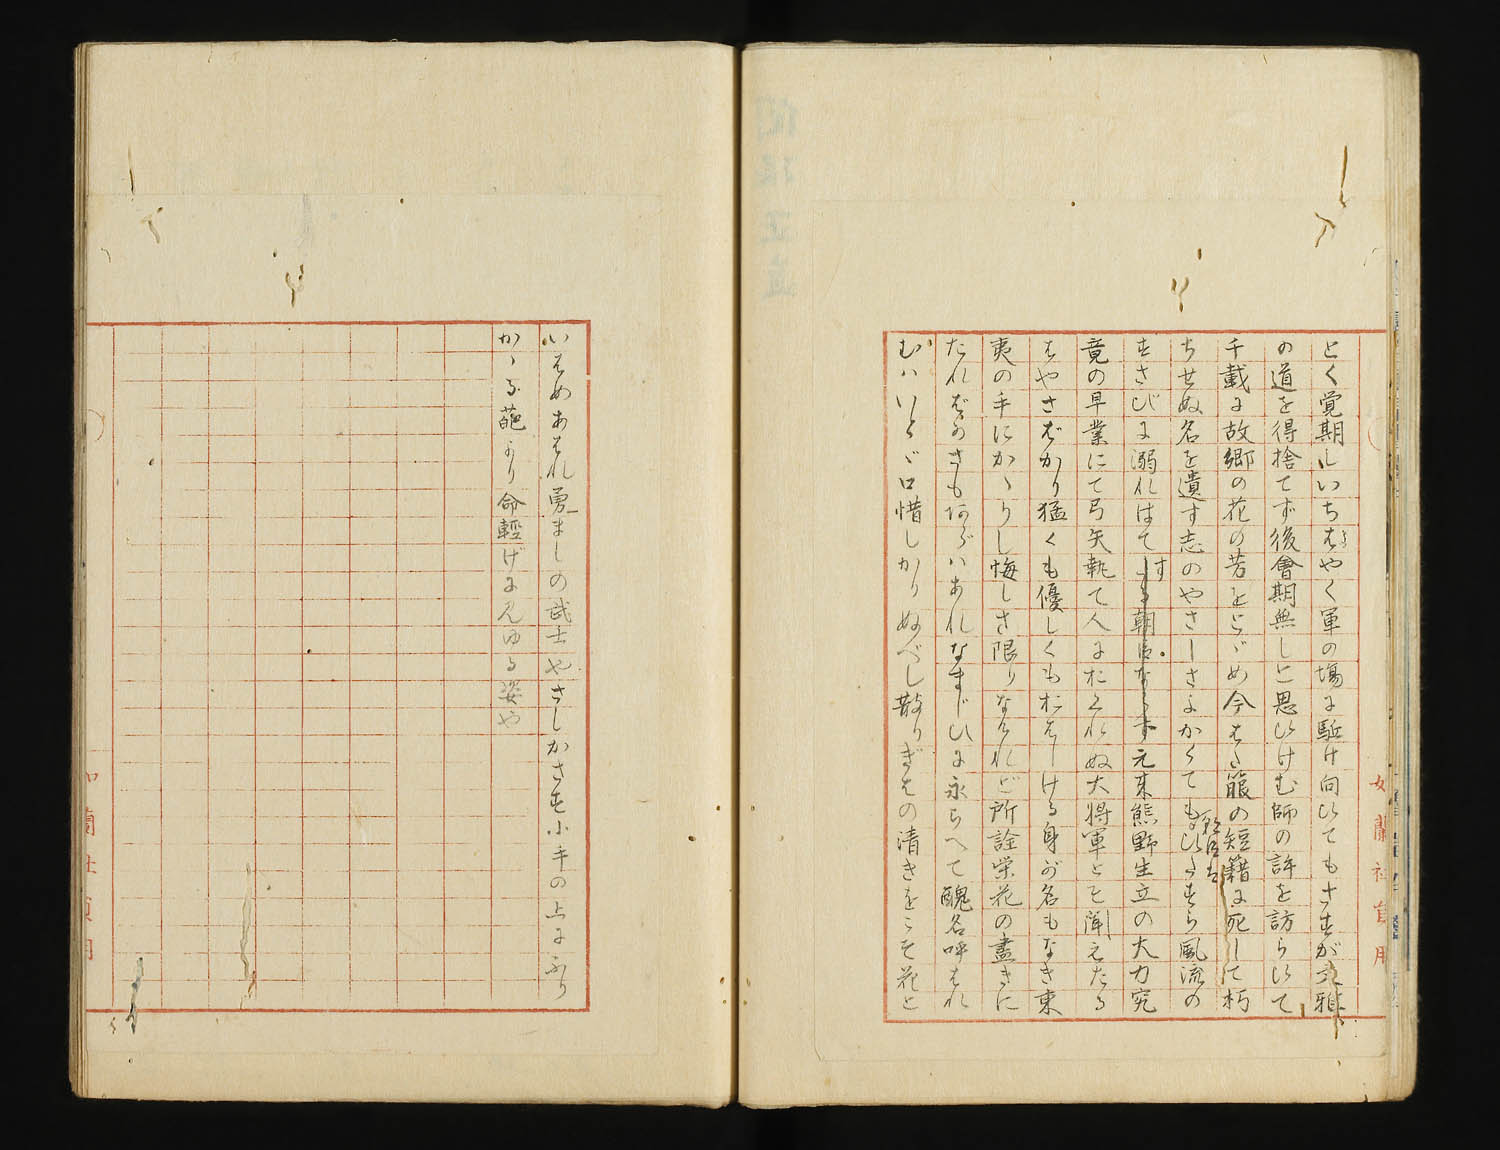 とく覚期しいちはやく軍の場に駈け向ひてもさすが文雅
の道を得捨てず後會期無しと思ひけむ師の許を訪らひて
千載に故郷の花の芳をとゞめ今はた箙の短籍に死して朽
ちせぬ名を遺す志のやさしさよかくてもひたすら風流の
すさびに溺れはてす元来熊野生立の大力究
竟の早業にて弓矢執て人におくれぬ大将軍とも聞えたる
はやさばかり猛くも優しくもおはしける身が名もなき東
夷の手にかゝりし悔しさ限りなけれど所詮栄花の盡きに
たればのさもあらバあれなまじひに永らへて醜名呼はれ
むハいとゞ口惜しかりぬべし散りぎはの清きをこそ花と
いはめあはれ勇ましの武士やさしかざす小手の上にふり
かゝる葩より命輕げに見ゆる姿や
如蘭社自用
如蘭社項用